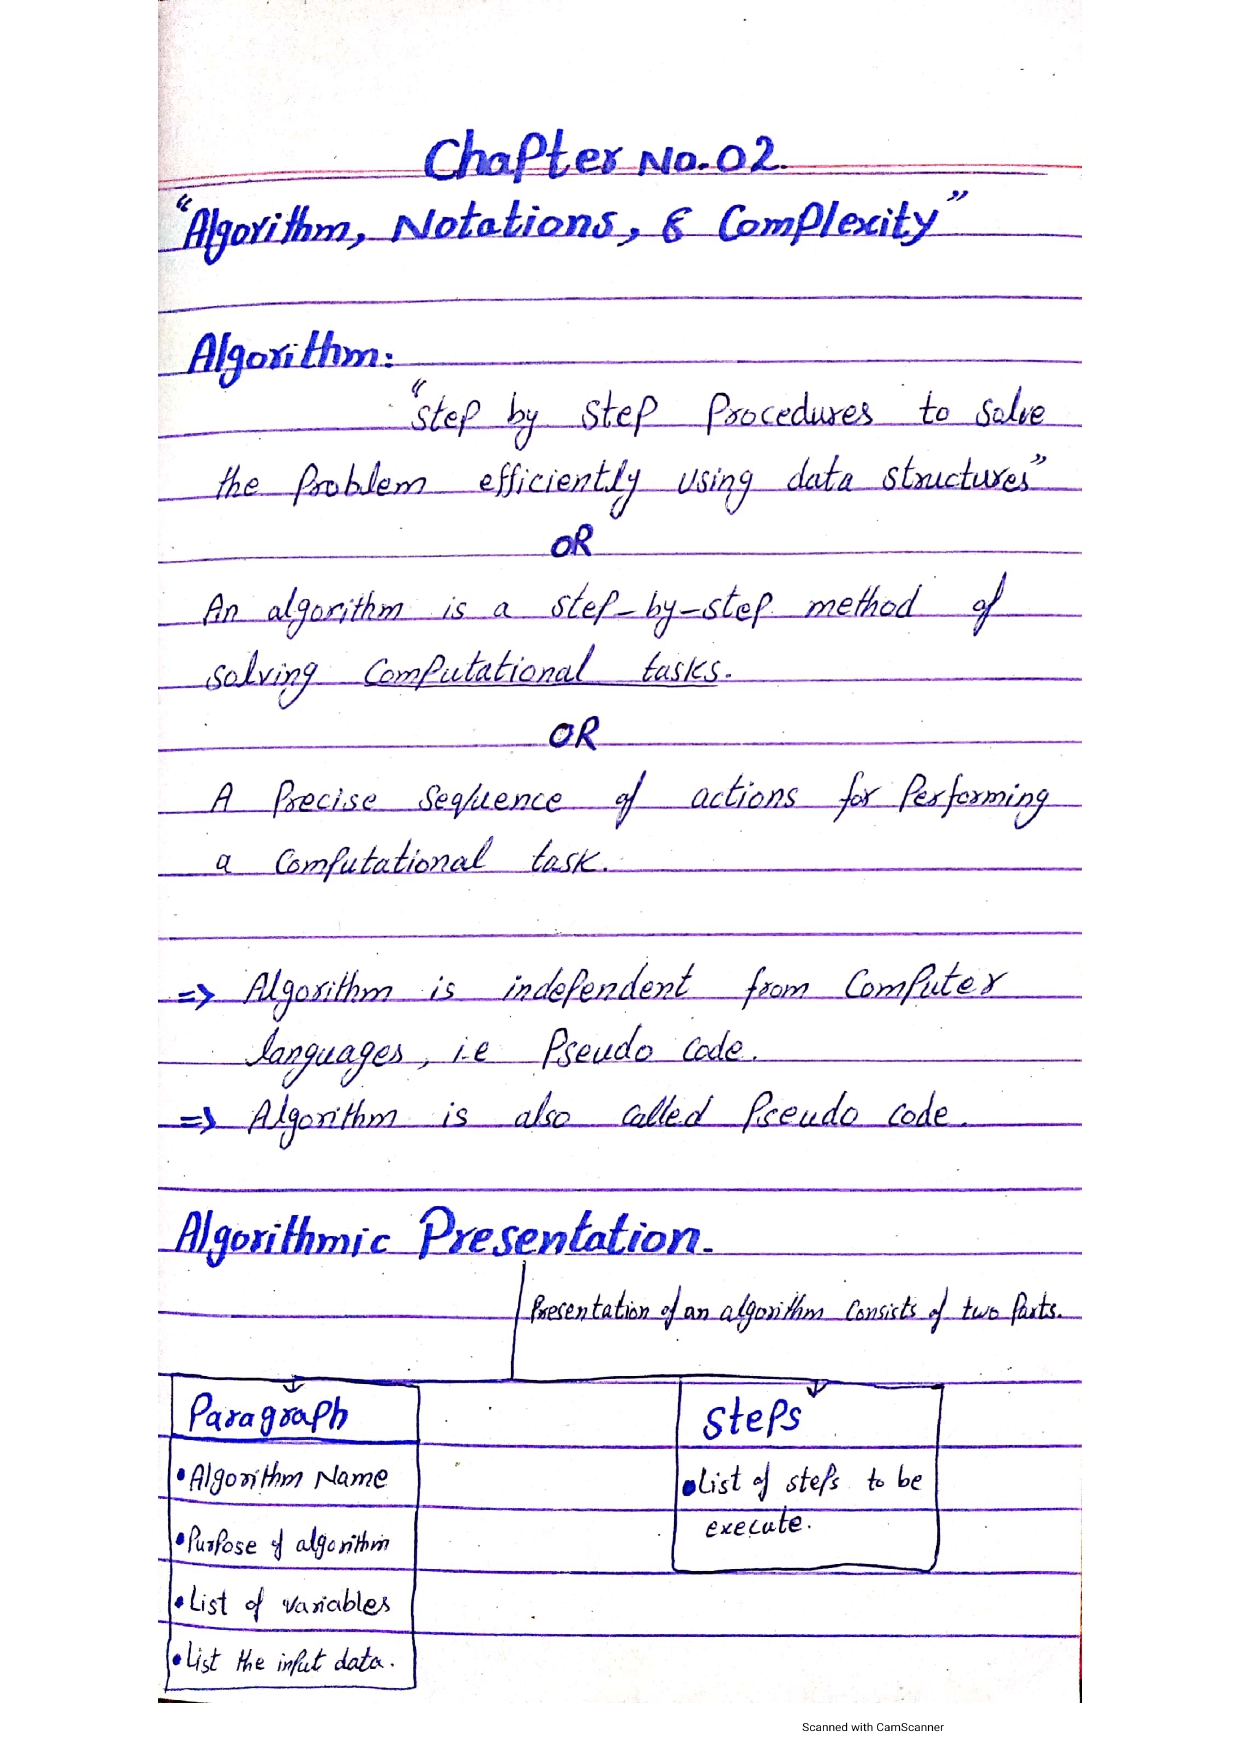 Chapter No.02.
"Algorithm, Notations, & Complexity"
Algorithm:
"Step by step Procedures to solve
the Problem efficiently using data structures"
OR
An algorithm is a step-by-step method of
solving Computational tasks.
OR
A Precise Sequence of actions for Performing
a Computational task.
=> Algorithm is independent from Computer
languages, i.e Pseudo Code.
=> Algorithm is also called Pseudo code.
Algorithmic Presentation.
Presentation of an algorithm Consists of two Parts.
Paragraph
• Algorithm Name
• Purpose of algorithm
• List of variables
• List the input data.
Steps
• List of steps to be
execute.
Scanned with CamScanner